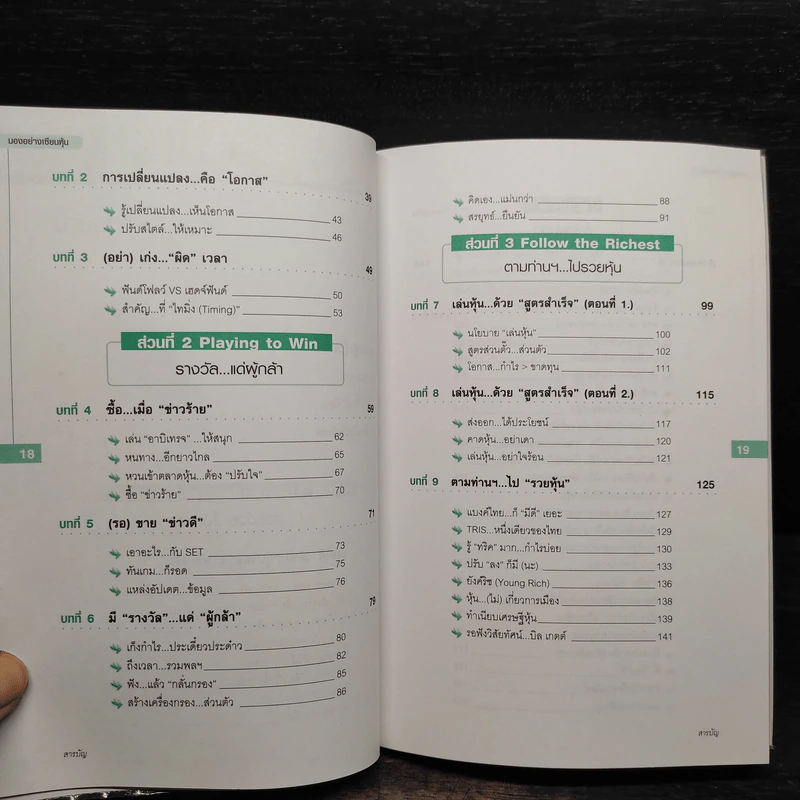 มองอย่างเซียนหุ้น
บทที่ 2 การเปลี่ยนแปลง...คือ “โอกาส” 39
รู้เปลี่ยนแปลง...เห็นโอกาส 43
ปรับสไตล์...ให้เหมาะ 46
บทที่ 3 (อย่า) เก่ง...“ผิด” เวลา 49
ฟันด์โฟลว์ VS เฮดจ์ฟันด์ 50
สำคัญ...ที่ “ไทมิ่ง (Timing)” 53
ส่วนที่ 2 Playing to Win
รางวัล...แด่ผู้กล้า
บทที่ 4 ซื้อ...เมื่อ “ข่าวร้าย” 59
เล่น “อาบิเทรจ” ...ให้สนุก 62
หนทาง...อีกยาวไกล 65
หวนเข้าตลาดหุ้น...ต้อง “ปรับใจ” 67
ซื้อ “ข่าวร้าย” 70
บทที่ 5 (รอ) ขาย “ข่าวดี” 71
เอาอะไร...กับ SET 73
ทันเกม...ก็รอด 75
แหล่งอัปเดต...ข้อมูล 76
บทที่ 6 มี “รางวัล”...แด่ “ผู้กล้า” 79
เก็งกำไร...ประเดี๋ยวประด๋าว 80
ถึงเวลา...รวมพลฯ 82
ฟัง...แล้ว “กลั่นกรอง” 85
สร้างเครื่องกรอง...ส่วนตัว 86
18
สารบัญ
คิดเอง...แม่นกว่า 88
สรยุทธ์...ยืนยัน 91
ส่วนที่ 3 Follow the Richest
ตามท่านฯ...ไปรวยหุ้น
บทที่ 7 เล่นหุ้น...ด้วย “สูตรสำเร็จ” (ตอนที่ 1.) 99
นโยบาย “เล่นหุ้น” 100
สูตรส่วนตั๊ว...ส่วนตัว 102
โอกาส...กำไร > ขาดทุน 111
บทที่ 8 เล่นหุ้น...ด้วย “สูตรสำเร็จ” (ตอนที่ 2.) 115
ส่งออก...ได้ประโยชน์ 117
คาดหุ้น...อย่าเดา 120
เล่นหุ้น...อย่าใจร้อน 121
บทที่ 9 ตามท่านฯ...ไป “รวยหุ้น” 125
แบงค์ไทย...ก็ “มีดี” เยอะ 127
TRIS...หนึ่งเดียวของไทย 129
รู้ “ทริค” มาก...กำไรบ่อย 130
ปรับ “ลง” ก็มี (นะ) 133
ยังค์ริช (Young Rich) 136
หุ้น...(ไม่) เกี่ยวการเมือง 138
ทำเนียบเศรษฐีหุ้น 139
รอฟังวิสัยทัศน์...บิล เกตต์ 141
19
สารบัญ